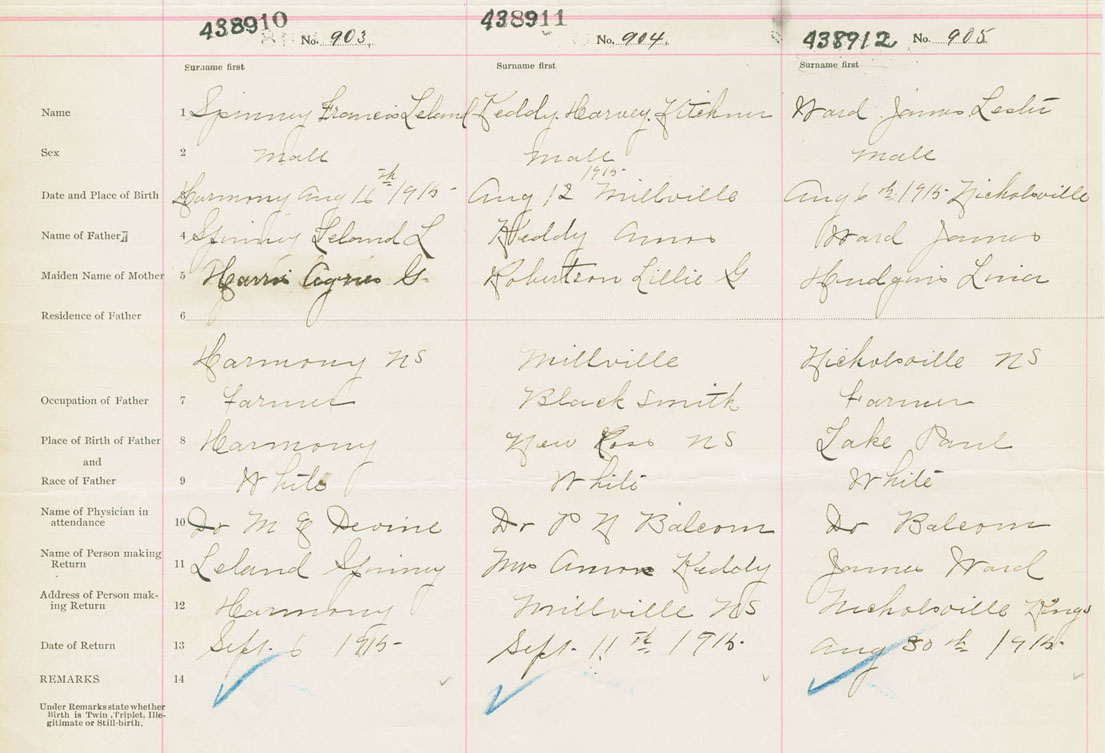 438910 No. 903 438911 No. 904 438912 No. 905
Surname first Surname first Surname first
Name 1 Spinney Francis Leland Keddy Harvey Kitchner Ward James Leslie
Sex 2 Male Male Male
Date and Place of Birth 3 Harmony Aug 16th 1915 Aug 12 1915 Millville Aug 6th 1915 Nicholsville
Name of Father 4 Spinney Leland L Keddy Amos Ward James
Maiden Name of Mother 5 Harris Agnes G. Robertson Lillie G Hudgins
Residence of Father 6
Harmony NS Millville Nicholsville NS
Occupation of Father 7 Farmer Black smith Farmer
Place of Birth of Father 8 Harmony New Ross NS Lake Paul
and
Race of Father 9 White White White
Name of Physician in
attendance 10 Dr M G Devine Dr P N Balcom Dr Balcom
Name of Person making
Return 11 Leland Spinney Mrs Amos Keddy James Ward
Address of Person mak-
ing Return 12 Harmony Millville NS Nicholsville Kings
Date of Return 13 Sept. 6 1915 Sept. 11th 1915 Aug 30th 1915
REMARKS 14
Under Remarks state whether
Birth is Twin, Triplet, Ille-
gitimate or Still-birth.